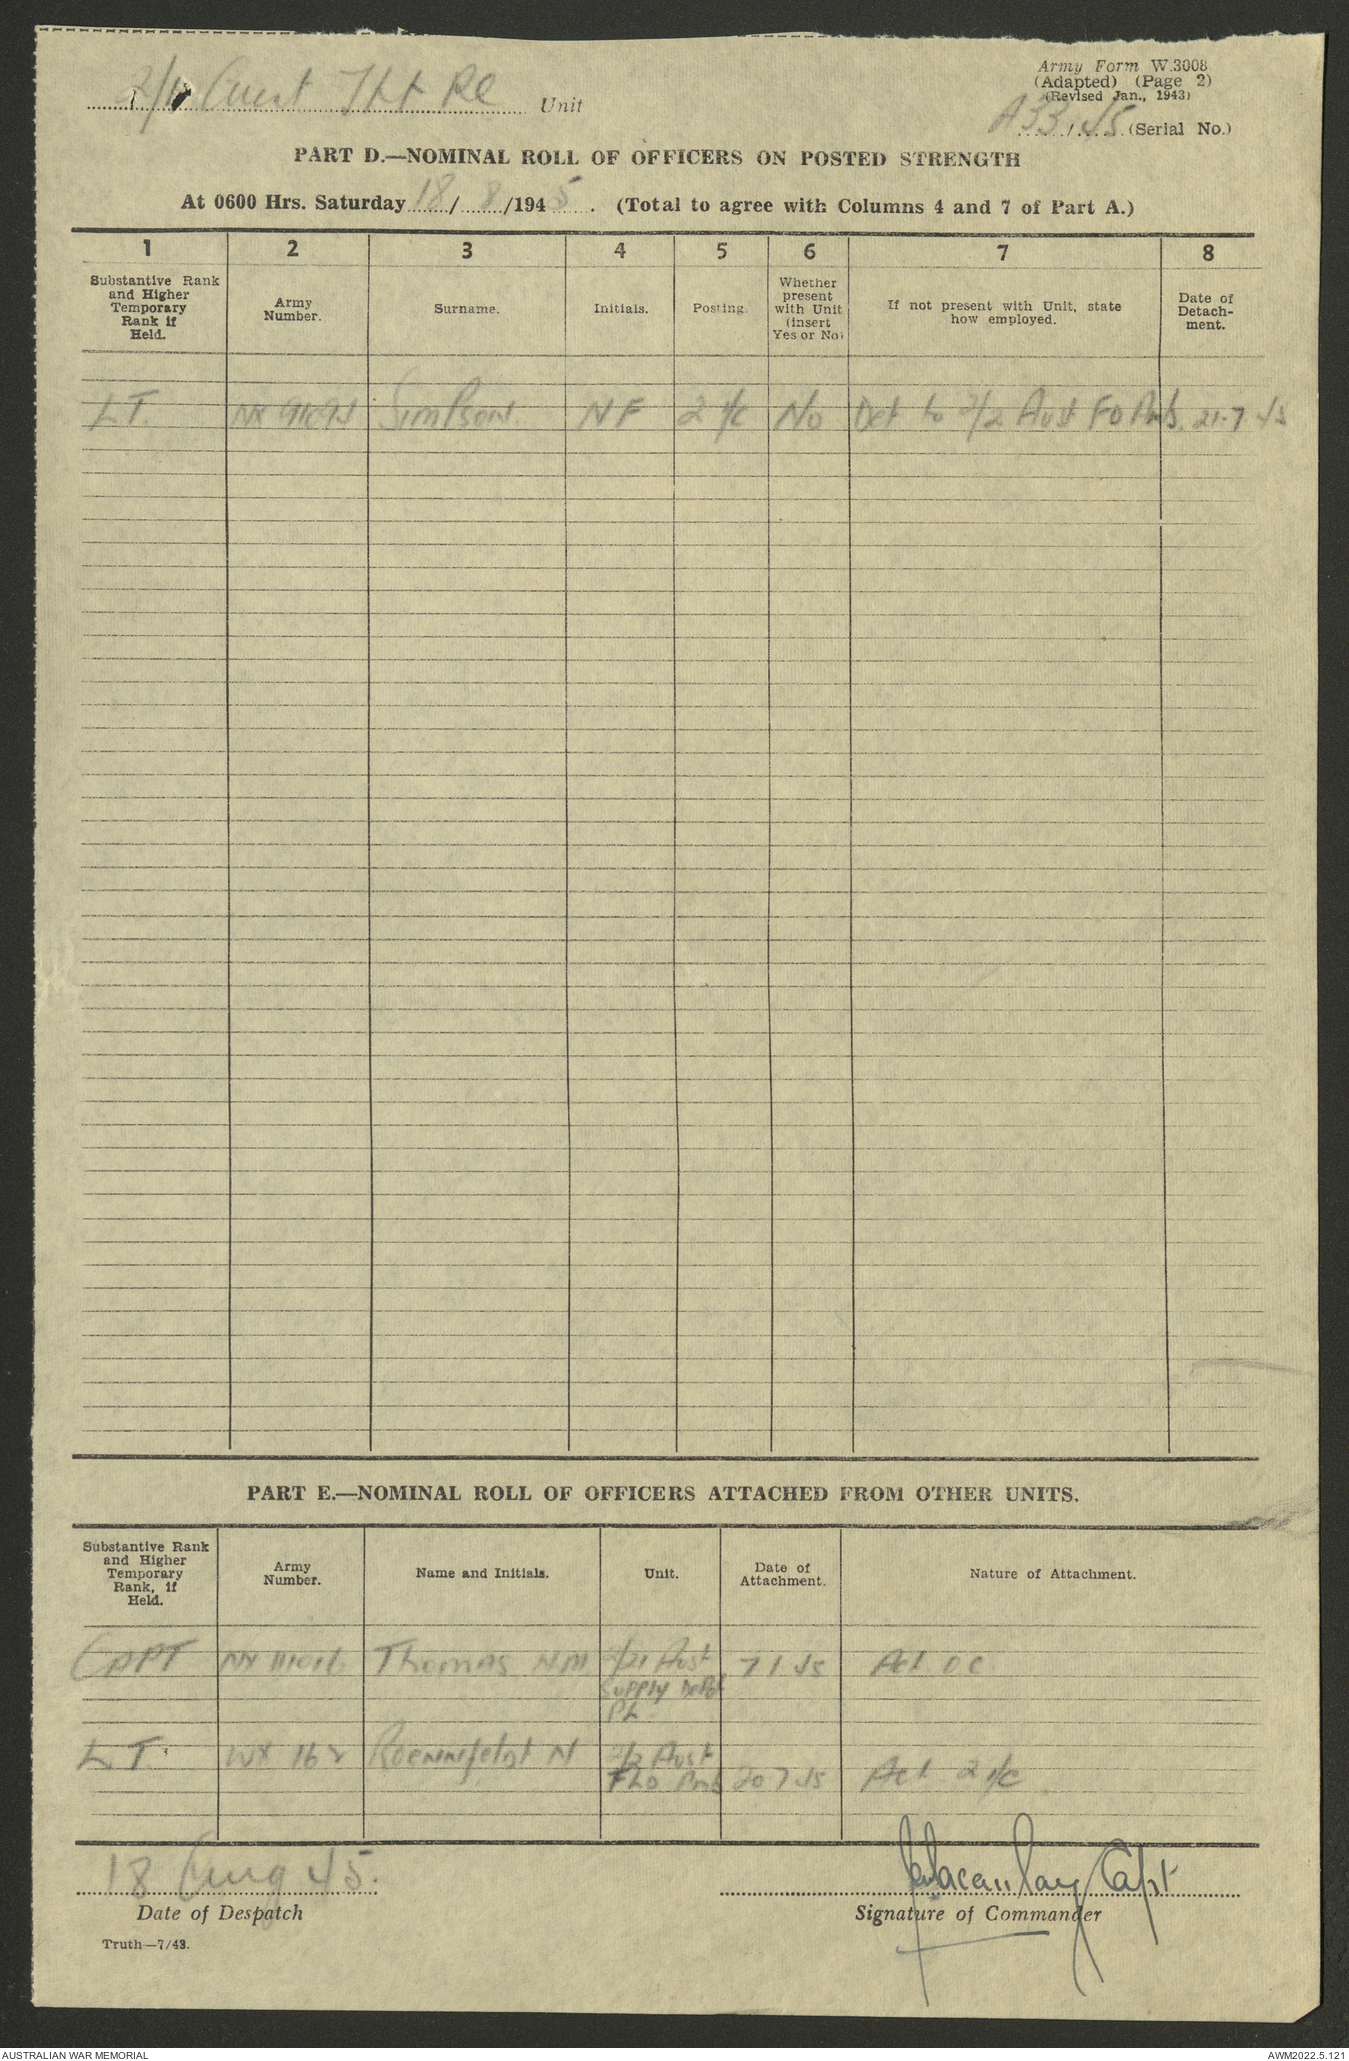 Army Form W.3008
(Adapted) (Page 2)
(Revised Jan., 1943)
2/1 Aust Unit
A33/45 (Serial No.)
PART D.—NOMINAL ROLL OF OFFICERS ON POSTED STRENGTH
At 0600 Hrs. Saturday 18/8/1945. (Total to agree with Columns 4 and 7 of Part A.)
1 2 3 4 5 6 7 8
Substantive Rank and Higher Temporary Rank if Held.
Army Number.
Surname.
Initials.
Posting.
Whether present with Unit (insert Yes or No)
If not present with Unit, state how employed.
Date of Detach-ment.
LT. Simpson NF 2 i/c No Det to 2/2 Aust FD Amb. 21.7.45
PART E.—NOMINAL ROLL OF OFFICERS ATTACHED FROM OTHER UNITS.
Substantive Rank and Higher Temporary Rank, if Held.
Army Number.
Name and Initials.
Unit.
Date of Attachment.
Nature of Attachment.
CAPT Thomas NM 2/21 Aust 7 1 45 Act OC
Supply Depot
PL
LT. WX Roennfeldt N 2/2 Aust
FLD Amb 20 7 45 Act 2 i/c
18 Aug 45.
Macaulay Capt
Date of Despatch
Signature of Commander
Truth—7/43.
AUSTRALIAN WAR MEMORIAL
AWM2022.5.121